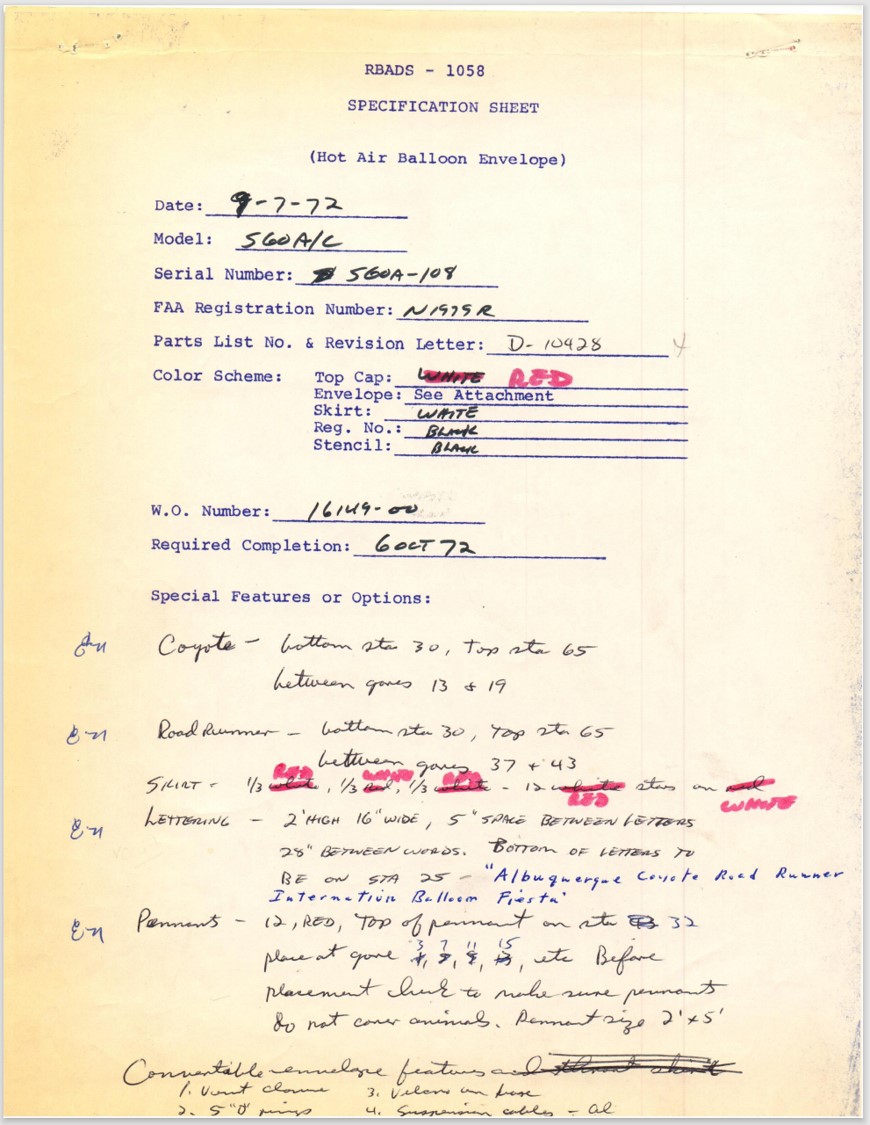 RBADS - 1058
SPECIFICATION SHEET
(Hot Air Balloon Envelope)
Date: 9-7-72
Model: S60A/C
Serial Number: S60A-108
FAA Registration Number: N1979R
Parts List No. & Revision Letter: D-10428
Color Scheme: Top Cap: WHITE RED
Envelope: See Attachment
Skirt: WHITE
Reg. No.: BLACK
Stencil: BLACK
W.O. Number: 16149-00
Required Completion: 6 OCT 72
Special Features or Options:
Coyote - bottom sta 30, Top sta 65
between gores 13 & 19
RoadRunner - bottom sta 30, Top sta 65
between gores 37 + 43
RED WHITE RED
SKIRT - 1/3 white, 1/3 red, 1/3 white - 12 white stars on red
RED WHITE
LETTERING - 2' HIGH 16" WIDE, 5" SPACE BETWEEN LETTERS
28" BETWEEN WORDS. BOTTOM OF LETTERS TO
BE ON STA 25 - "Albuquerque Coyote Road Runner
Internation Balloon Fiesta"
Pennants - 12, RED, TOP of pennant on sta 32
3 7 11 15
place at gore , etc Before
placement check to make sure pennants
do not cover animals. Pennant size 2' x 5'
Convertable envelope features and
1. Vent closure 3. Velcro on base
2. 5" "D" rings 4. Suspension cables - al